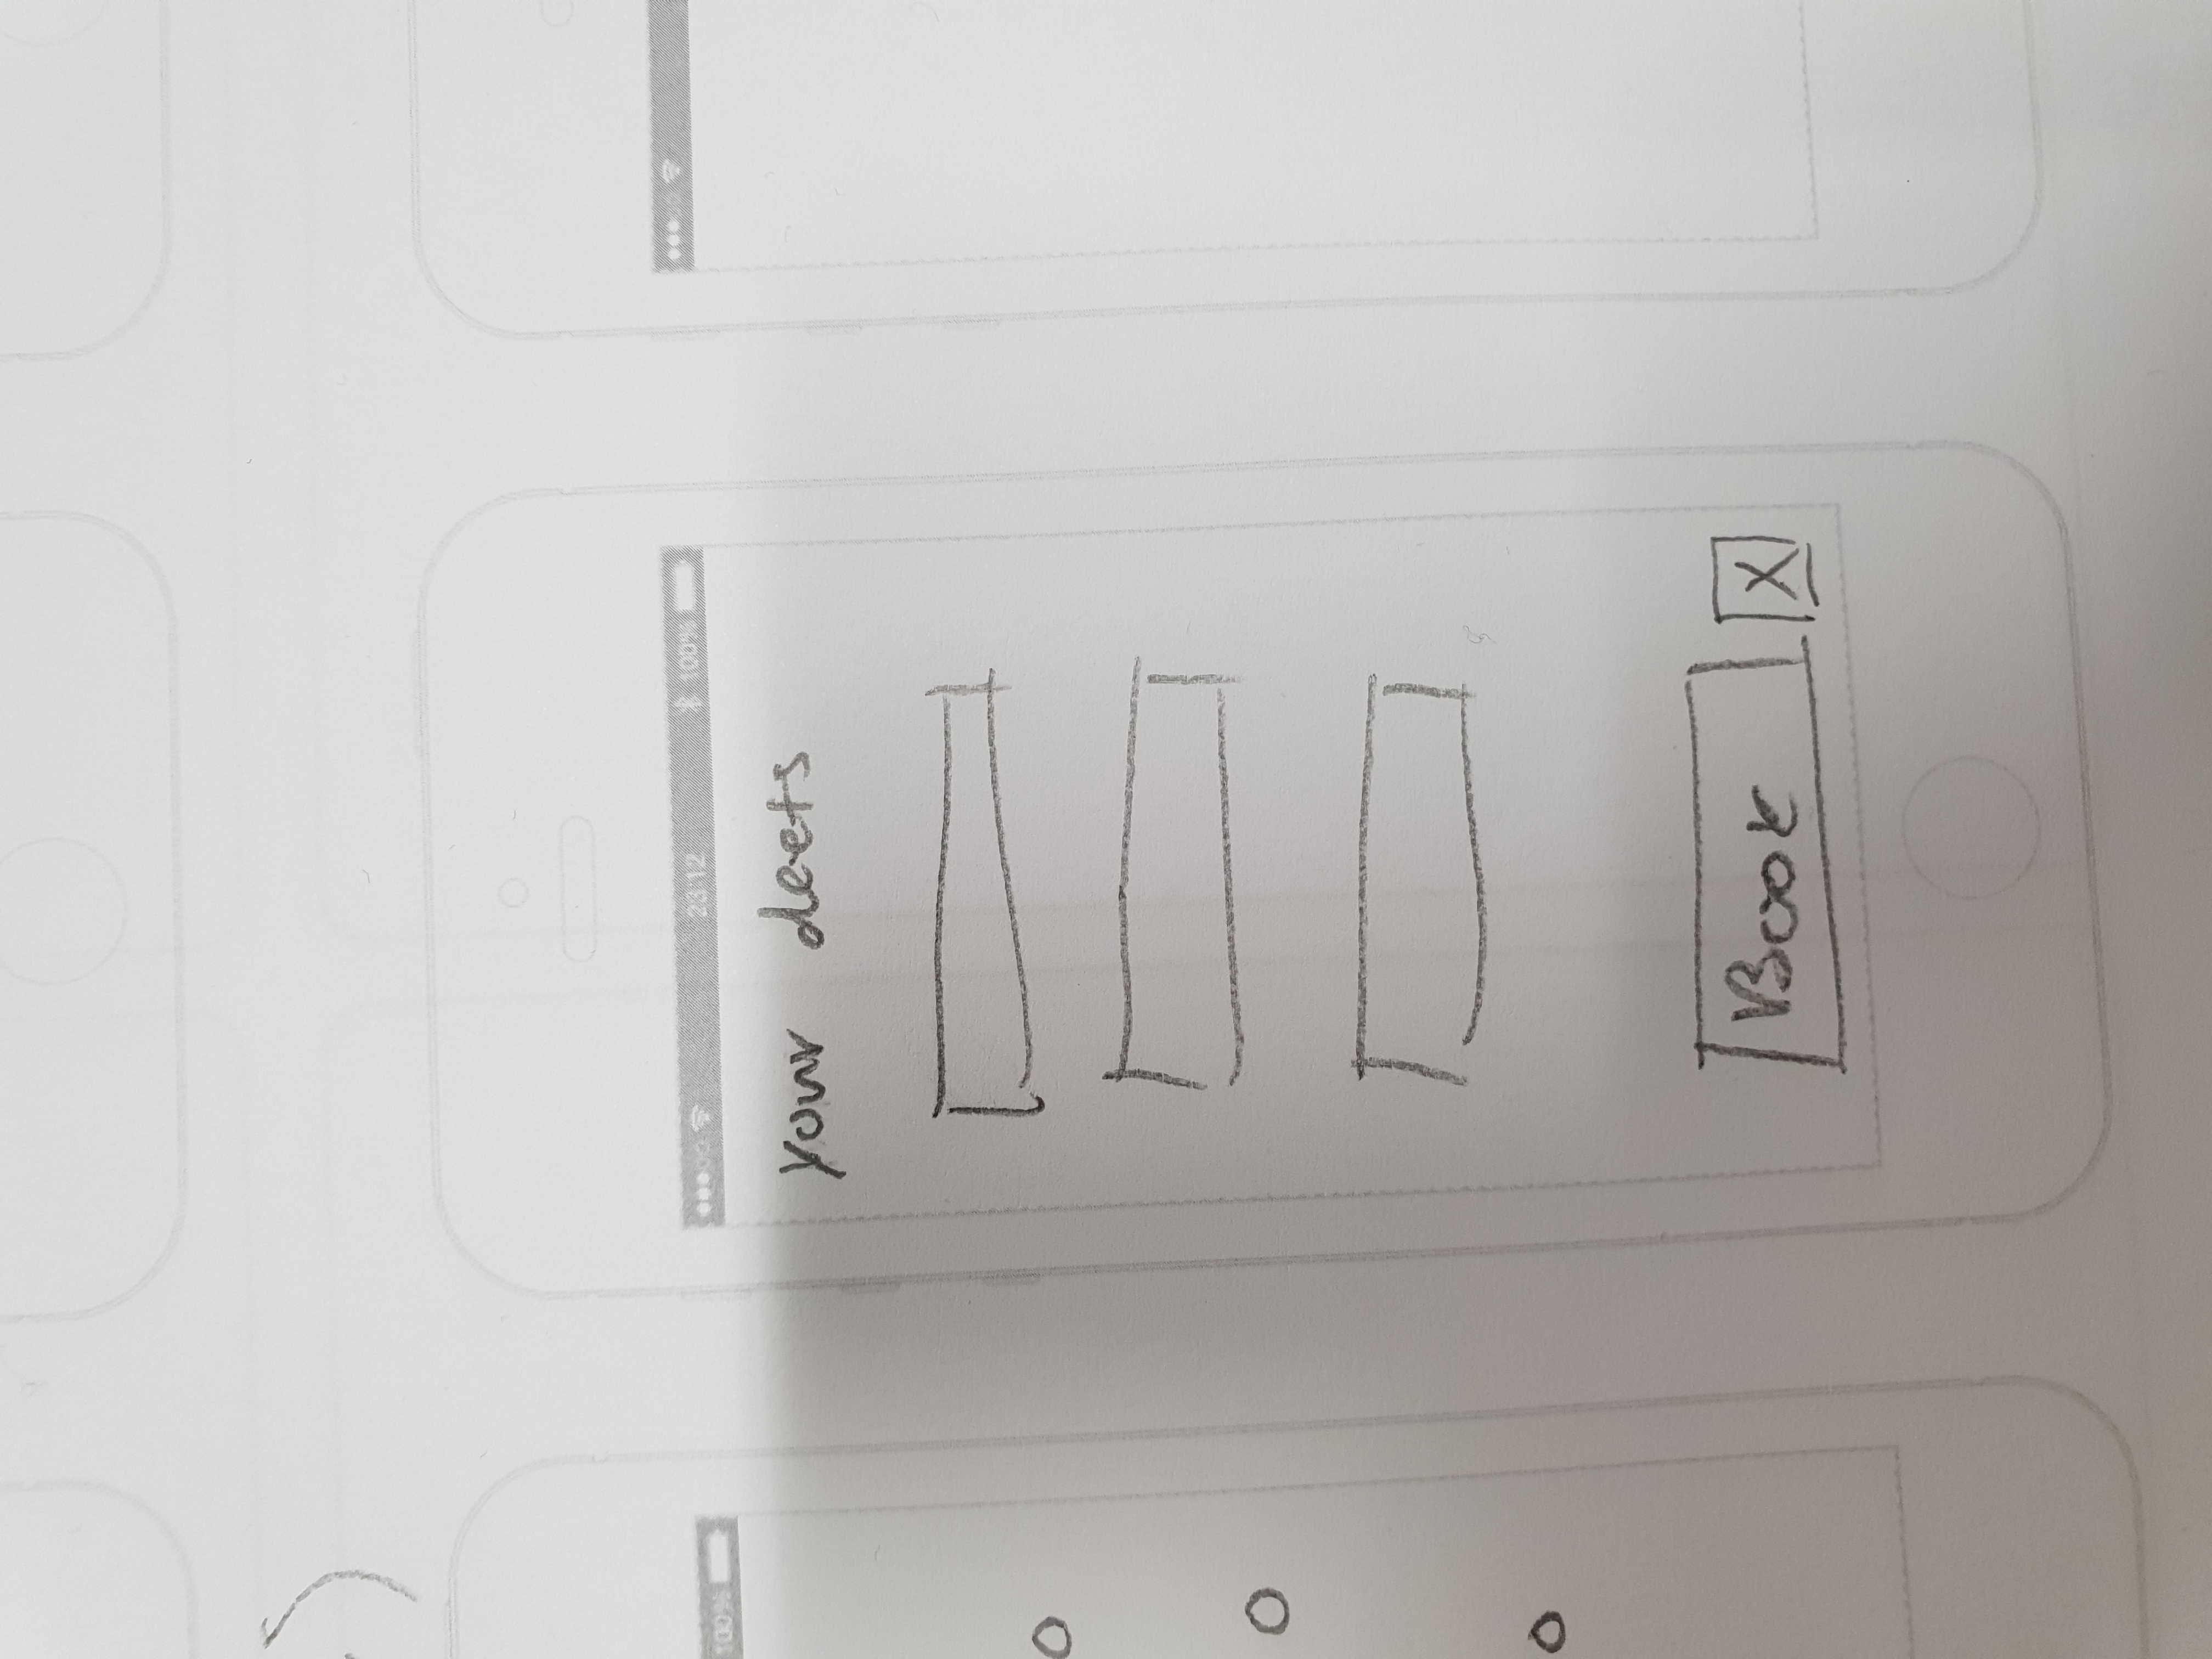 100%
23:12 100%
your deets
Book X